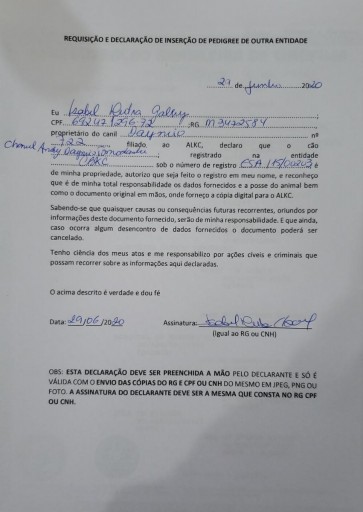 REQUISIÇÃO E DECLARAÇÃO DE INSERÇÃO DE PEDIGREE DE OUTRA ENTIDADE
29 de Junho 2020
Eu Isabel Dutra
CPF ,RG M3472584
proprietário do canil nº
722 filiado ao ALKC, declaro que o cão
registrado na entidade
CBKC sob o número de registro e
de minha propriedade, autorizo que seja feito o registro em meu nome, e reconheço
que é de minha total responsabilidade os dados fornecidos e a posse do animal bem
como o documento original em mãos, onde forneço a cópia digital para o ALKC.
Sabendo-se que quaisquer causas ou consequências futuras recorrentes, oriundos por
informações deste documento fornecido, serão de minha responsabilidade. E que ainda,
caso ocorra algum desencontro de dados fornecidos o documento poderá ser
cancelado.
Tenho ciência dos meus atos e me responsabilizo por ações cíveis e criminais que
possam recorrer sobre as informações aqui declaradas.
O acima descrito é verdade e dou fé
Data: 29/06/2020 Assinatura:
(Igual ao RG ou CNH)
OBS: ESTA DECLARAÇÃO DEVE SER PREENCHIDA A MÃO PELO DECLARANTE E SÓ É
VÁLIDA COM O ENVIO DAS CÓPIAS DO RG E CPF OU CNH DO MESMO EM JPEG, PNG OU
FOTO. A ASSINATURA DO DECLARANTE DEVE SER A MESMA QUE CONSTA NO RG CPF
OU CNH.